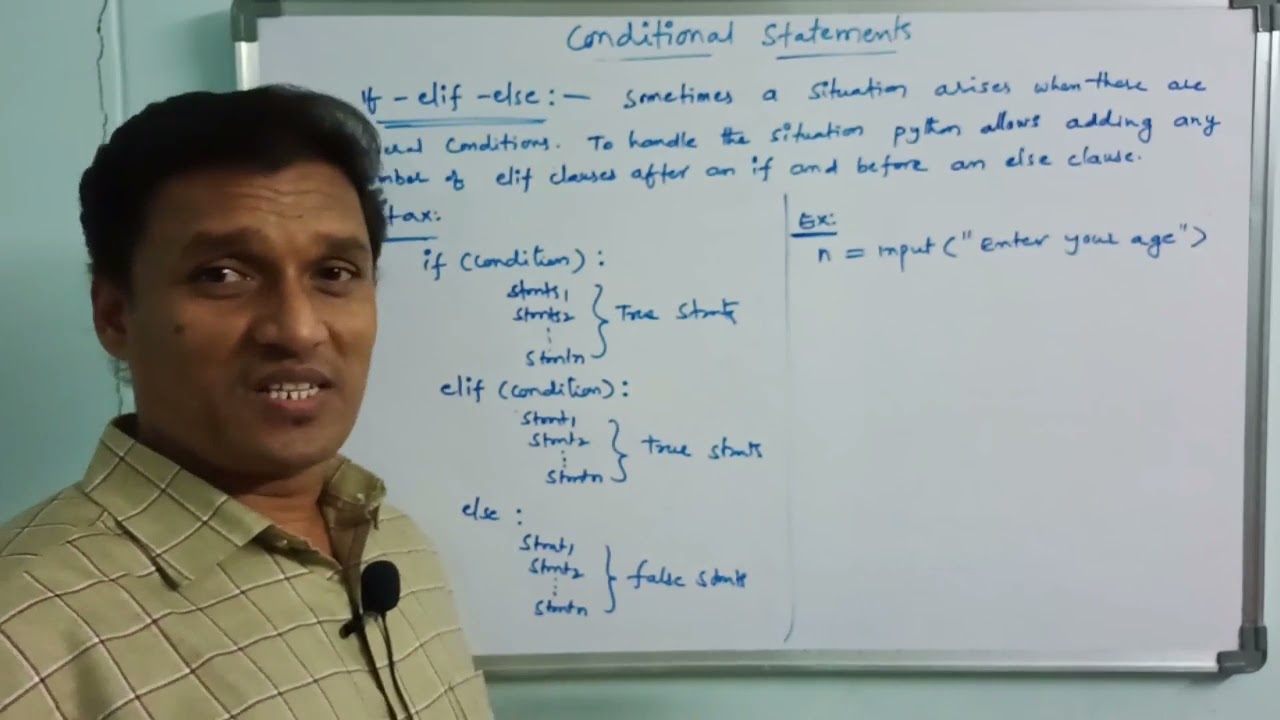 Conditional Statements
if - elif - else : - Sometimes a situation arises when there are
Conditions. To handle the situation python allows adding any
of elif clauses after an if and before an else clause.
tax:
if (condition) :
Stmts1
Stmts2
Stmtn
True Stmts
elif (condition) :
Stmt1
Stmt2
Stmtn
True stmts
else :
Stmt1
Stmt2
Stmtn
false stmts
Ex:
n = input ("Enter your age")